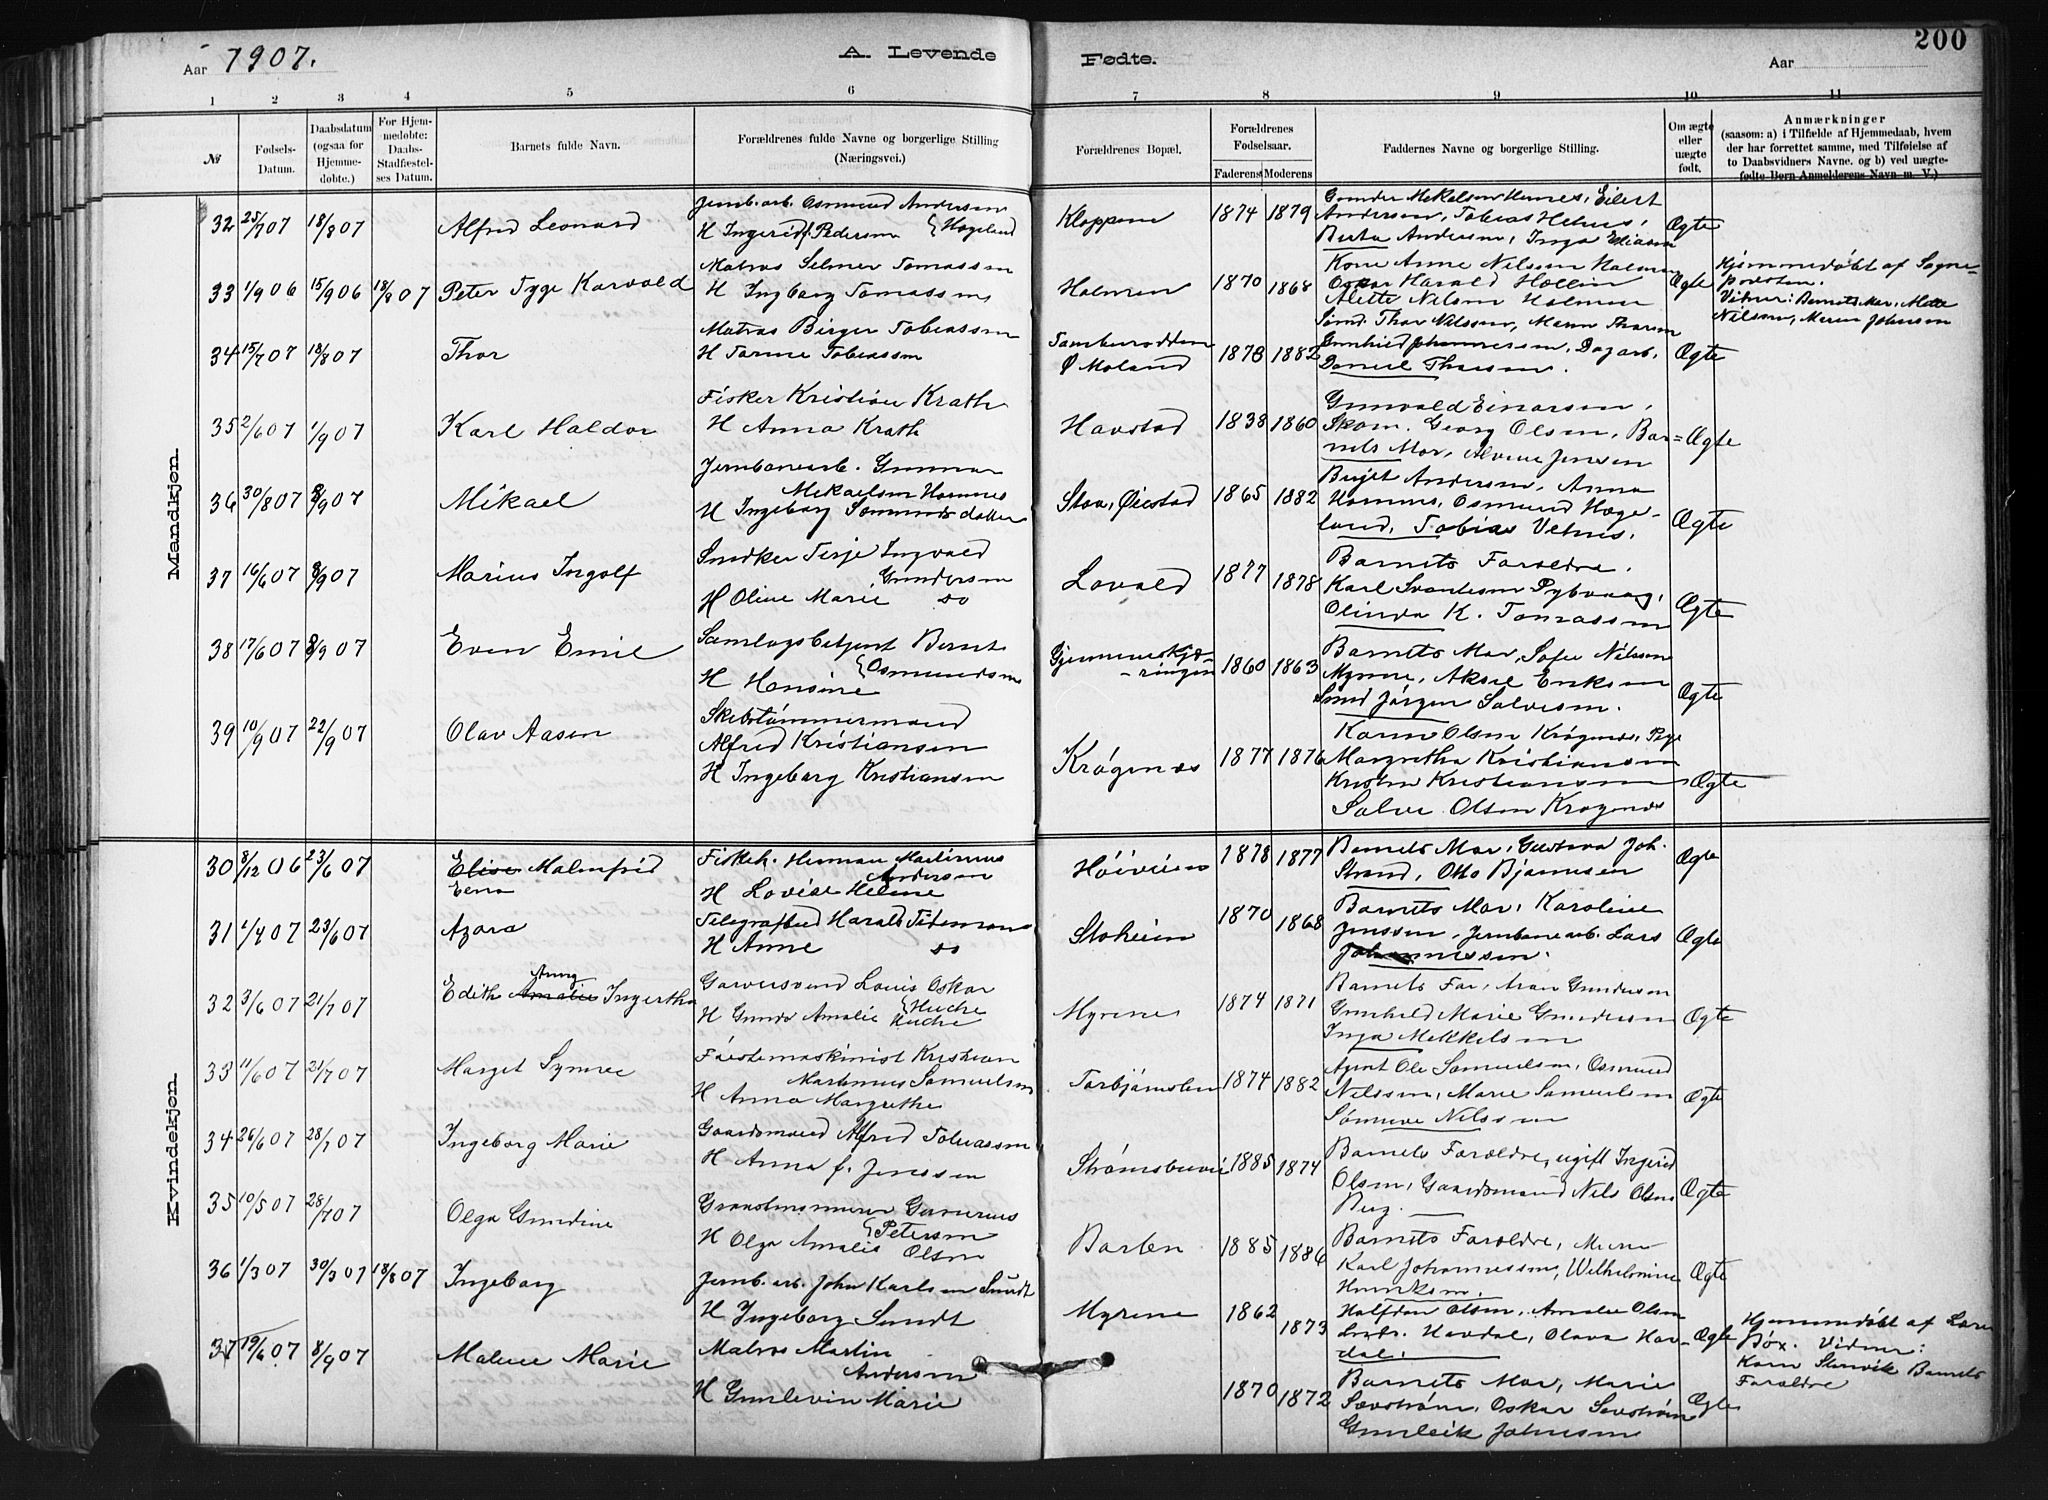 Aar 1907.
A. Levende
Fødte.
Aar
200
1 2 3 4 5 6 7 8 9 10 11
№
Fødsels-Datum.
Daabsdatum (ogsaa for Hjemmedøbte.)
For Hjemmedøbte: Daabs-Stadfæstelses Datum.
Barnets fulde Navn.
Forældrenes fulde Navne og borgerlige Stilling (Næringsvei.)
Forældrenes Bopæl.
Forældrenes Fødselsaar.
Faderens Moderens
Faddernes Navne og borgerlige Stilling.
Om ægte eller uægte født.
Anmærkninger (saasom: a) i Tilfælde af Hjemmedaab, hvem der har forrettet samme, med Tilføielse af to Daabsvidners Navne. og b) ved uægtefødte Børn Anmelderens Navn m. V.)
Mandkjøn.
32 25/7 07 18/8 07 Alfred Leonard
Jernb.arb. Osmund Andersen
H Ingerid f. Pedersen Hageland
1874 1879
Andersen, Tobias
Berta Andersen, Inga Eliasen
Ægte
33 1/9 06 15/9 06 18/8 07 Peter Tyge Karvald
Matros Selmer Tomassen
H Ingborg Tomassen
Holmen 1870 1868
Kone Anne Nilssen Holmen
Oskar Harald
Alette Nilsen Holmen
Ægte
Hjemmedøbt af Sognepresten.
Vidner: Barnets Mor, Mette
Nilssen, Maren Johnsen
34 15/7 07 18/8 07 Thor
Matros Birger Tobiassen
H Tomine Tobiassen
Ø Moland 1878 1882
Smed Thor Nilssen, Maren Thorsen
Gunhild Johannessen, Dagarb.
Daniel Thorsen.
Ægte
35 2/6 07 1/9 07 Karl Haldor
Fisker Kristian Krath
H Anna Krath
Havstad 1838 1860
Gunvald Einarsen,
Skom. Georg Olsen, Barnets Mor, Alvine Jensen
Ægte
36 30/8 07 8/9 07 Mikael
Jernbanearb. Gunnar
Mikaelsen Homnes
H Ingeborg Somundsdatter
Stoa, Øiestad 1865 1882
Birgit Andersen, Anna
Homnes, Osmund Hægeland, Tobias
Ægte
37 16/6 07 8/9 07 Marius Ingolf
Snedker Terje Ingvald
Gundersen
H Oline Marie do
Lovold 1877 1878
Barnets Forældre,
Karl Svantesen Pybvaag,
Olinda K. Tomassen
Ægte
38 17/6 07 8/9 07 Even Emil
Samlagsbetjent Bernt
Osmundsen
H Hansine
1860 1863
Barnets Mor, Sofie Nilssen
Myrene, Aksel Eriksen
Smed Jørgen Salvesen.
Ægte
39 10/9 07 22/9 07 Olav Aasen
Skibstømmermand
Alfred Kristiansen
H Ingeborg Kristiansen
Krøgenes 1877 1876
Karen Olsen Krøgenes, Pige
Margretha Kristiansen
Kristen Kristiansen
Salve Olsen Krøgenes
Ægte
Kvindekjøn.
30 8/12 06 23/6 07 Elise Malmfrid
Fiskeh. Herman Martinius
Andersen
H Lovise Helene
1878 1877
Barnets Mor, Gustava Joh.
Strand, Otto Bjørnesen
Ægte
31 1/4 07 23/6 07 Azora
Harald Tidemann
H Anne do
Stoheien 1870 1868
Barnets Mor, Karoline
Jenssen, Jernbanearb. Lars
Johannessen.
Ægte
32 3/6 07 21/7 07 Edith Amalie Ingertha
Anny
Garversvend Louis Oskar
Huche
H Gunda Amalie Huche
Myrene 1874 1871
Barnets Far, Aron Gundersen
Gunhild Marie Gundersen
Inga Mikkelsen
Ægte
33 11/6 07 21/7 07 Marget Synnve
Kristian
Martinius Samuelsen
H Anna Margrethe
Torbjørnsbu 1874 1882
Agent Ole Samuelsen, Osmund
Nilssen, Marie Samuelsen
Nilssen
Ægte
34 26/6 07 28/7 07 Ingeborg Marie
Gaardsmand Alfred Tobiassen
H Anna f. Jenssen
Strømsbuvei 1885 1874
Barnets Forældre, ugift Ingerid
Olsen, Gaardsmand Nils Olsen
Ægte
35 10/5 07 28/7 07 Olga Gundine
Petersen
H Olga Amalie Olsen
Barlen 1885 1886
Barnets Forældre, Murer
Karl Johannessen, Wilhelmine
Henriksen.
Ægte
36 1/3 07 30/3 07 18/8 07 Ingeborg
Jernb.arb. John Karlsen Sundt
H Ingeborg Sundt
Myrene 1862 1873
Halfdan Olsen, Amalie Olsen
Havdal, Olava Havdal.
Ægte
Hjemmedøbt af
Bøx. Vidner:
Karen Stenvik Barnets
Forældre
37 19/6 07 8/9 07 Malene Marie
Matros Martin
Andersen
H Gunlevin Marie
1870 1872
Barnets Mor, Marie
Sævstrøm, Oskar Sevstrøm
Gunleik Johnsen
Ægte